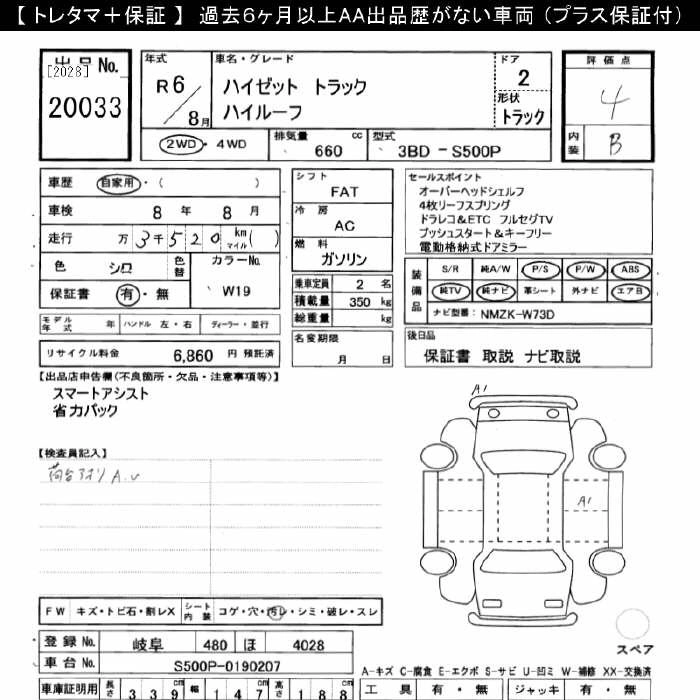 【トレタマ＋保証】 過去6ヶ月以上AA出品歴がない車両（プラス保証付）
出品No.
[2028]
20033
年式
R6/8月
車名・グレード
ハイゼット トラック
ハイルーフ
ドア
2
形状
トラック
評価点
4
内装
B
2WD・4WD
排気量
660 cc
型式
3BD - S500P
車歴 自家用・( )
車検 8 年 8 月
走行 万 3千520 km マイル( )
色 シロ 色替 カラーNo.
保証書 有・無 W19
シフト
FAT
冷房
AC
燃料
ガソリン
乗車定員 2 名
積載量 350 kg
総重量 kg
セールスポイント
オーバーヘッドシェルフ
4枚リーフスプリング
ドラレコ＆ETC フルセグTV
プッシュスタート＆キーフリー
電動格納式ドアミラー
装備品
S/R 純A/W P/S P/W ABS
純TV 純ナビ 革シート 外ナビ エアB
ナビ型番: NMZK-W73D
モデル年式 年 ハンドル 左・右 ディーラー・並行
リサイクル料金 6,860 円 預託済
名変期限
月 日
後日品
保証書 取説 ナビ取説
【出品店申告欄(不良箇所・欠品・注意事項等)】
スマートアシスト
省力パック
【検査員記入】
荷台アオリ A.U
A1
A1
スペア
FW キズ・トビ石・割レX シート内装 コゲ・穴・汚レ・シミ・破レ・スレ
登録No. 岐阜 480 ほ 4028
車台No. S500P-0190207
A-キズ C-腐食 E-エクボ S-サビ U-凹ミ W-補修 XX-交換済
車庫証明用 長さ 339 cm 幅 147 cm 高さ 188 cm
工具 有・無 ジャッキ 有・無